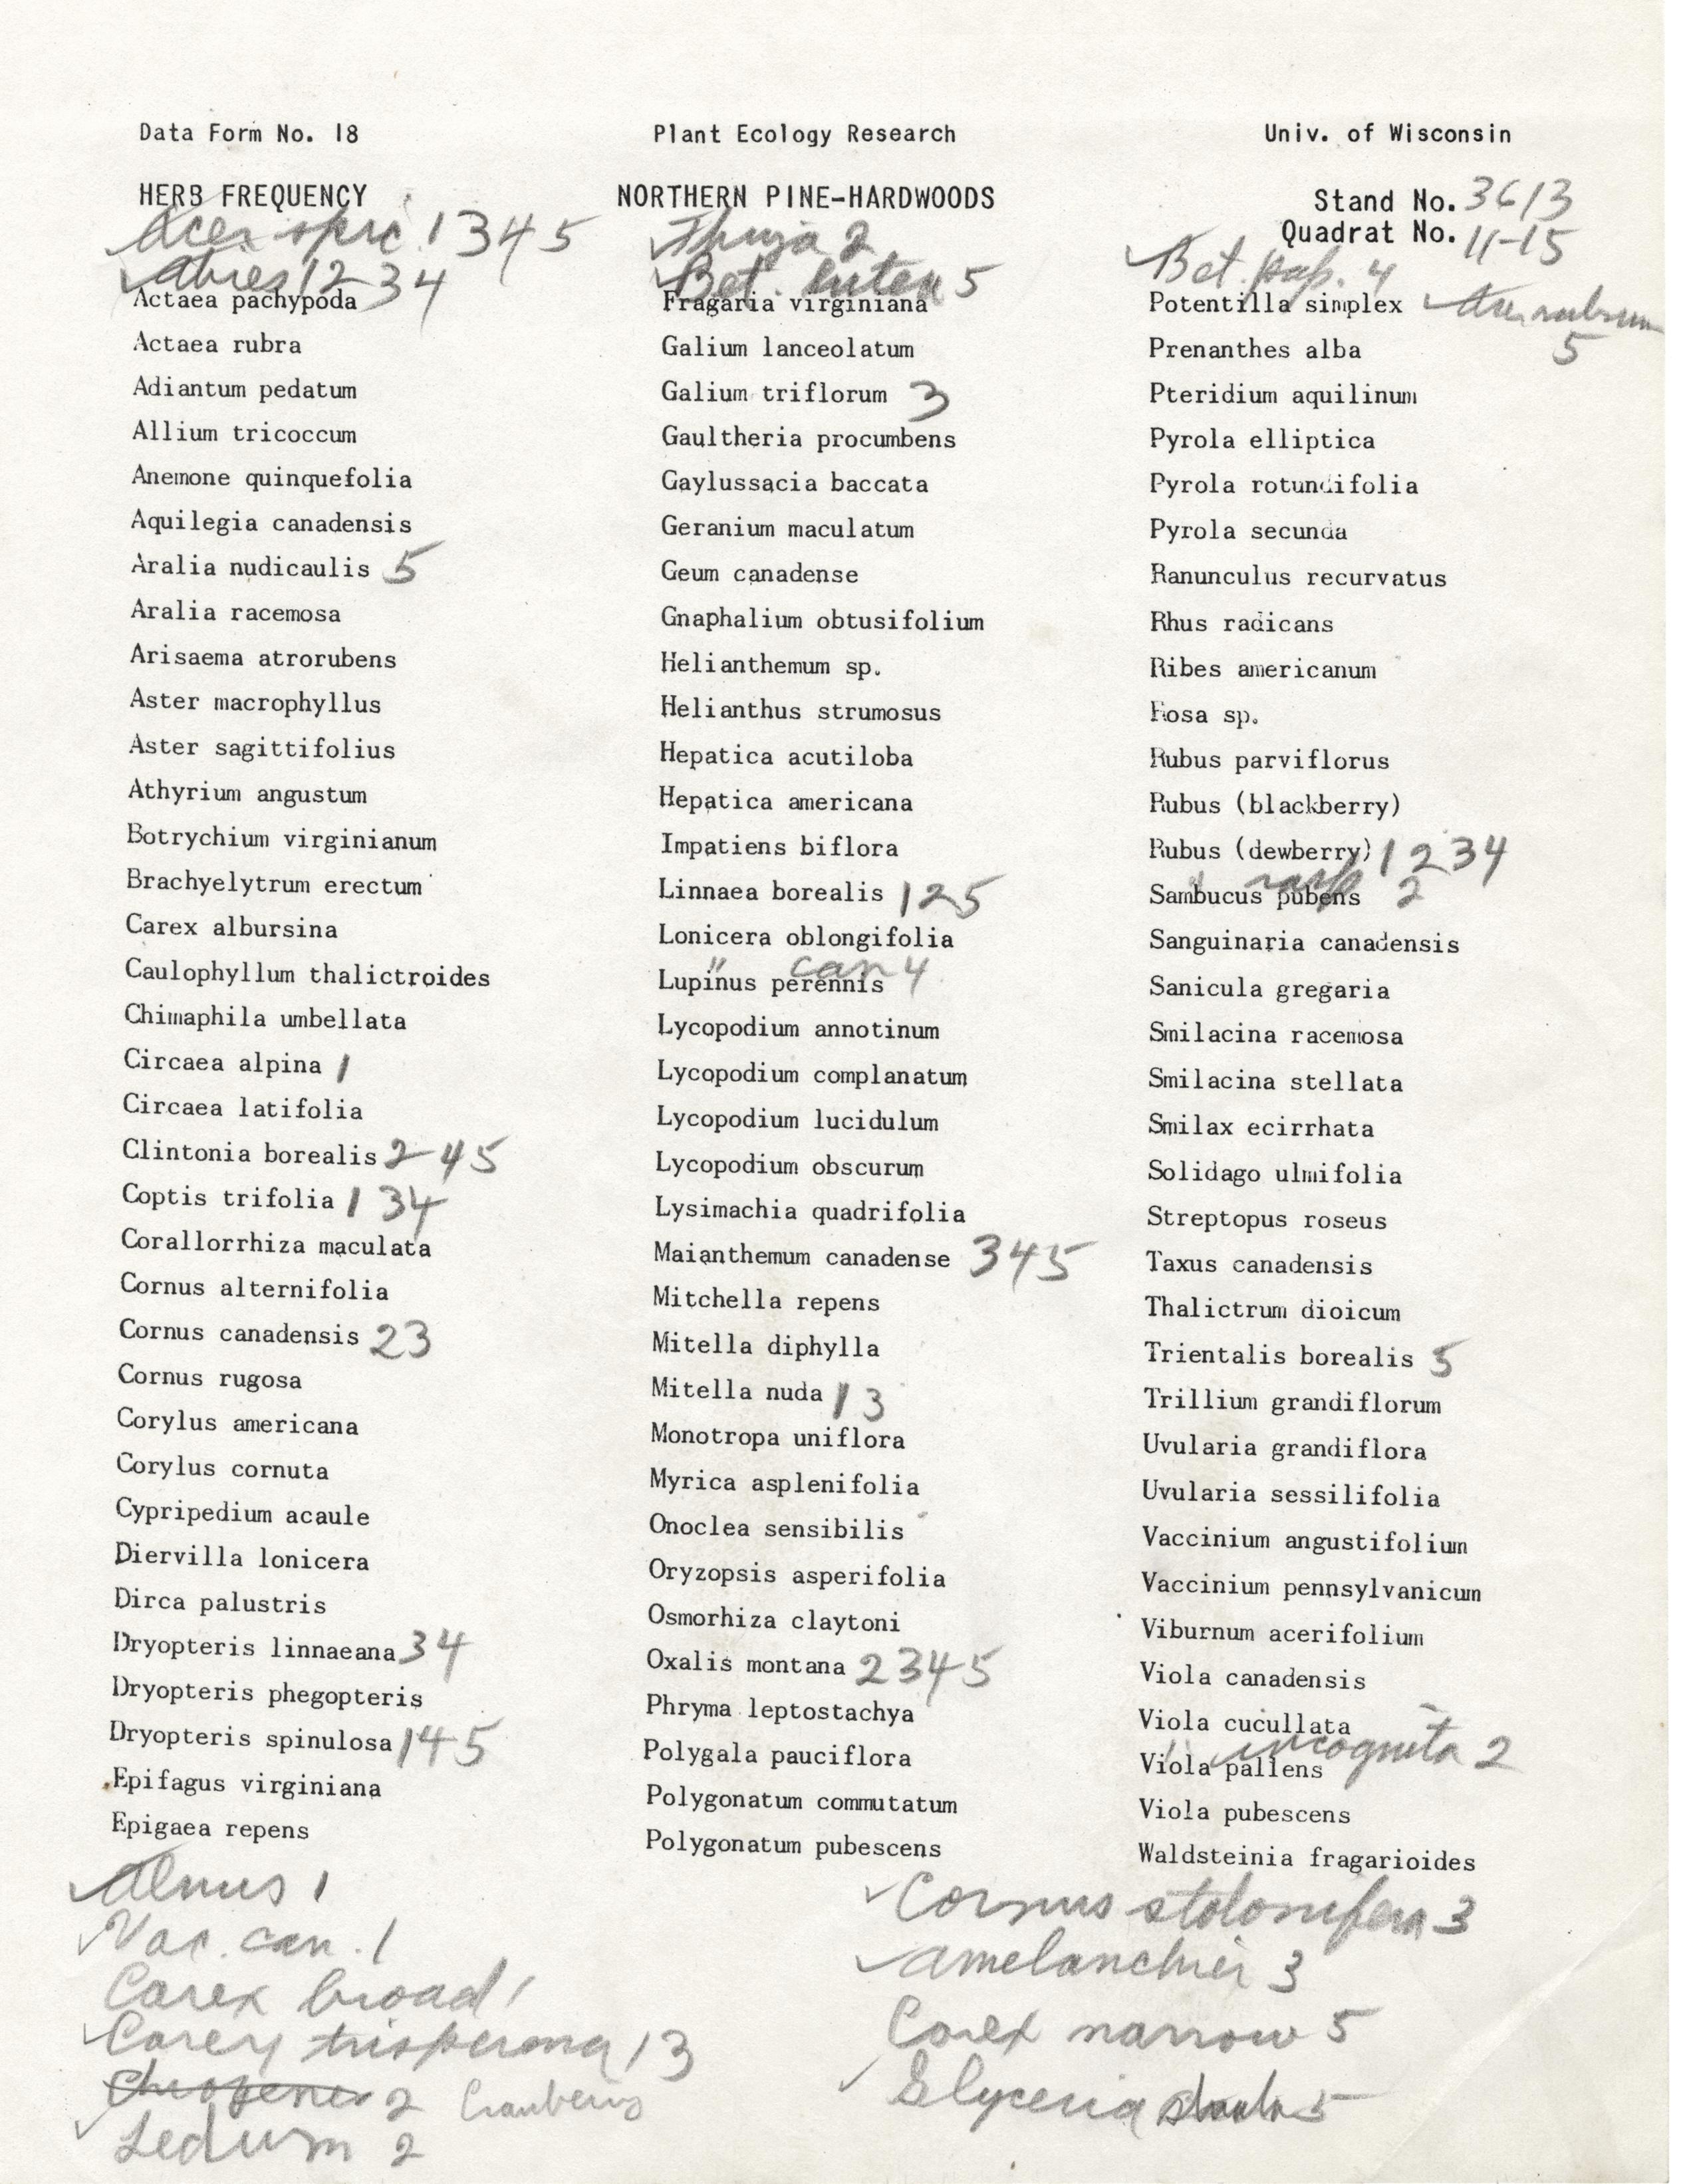 Data Form No. 18
Plant Ecology Research
Univ. of Wisconsin
HERB FREQUENCY
NORTHERN PINE-HARDWOODS
Stand No. 3613
Quadrat No. 11-15
Acer spic. 1 3 4 5
Abies 1 2 3 4
Actaea pachypoda
Actaea rubra
Adiantum pedatum
Allium tricoccum
Anemone quinquefolia
Aquilegia canadensis
Aralia nudicaulis 5
Aralia racemosa
Arisaema atrorubens
Aster macrophyllus
Aster sagittifolius
Athyrium angustum
Botrychium virginianum
Brachyelytrum erectum
Carex albursina
Caulophyllum thalictroides
Chimaphila umbellata
Circaea alpina 1
Circaea latifolia
Clintonia borealis 2 4 5
Coptis trifolia 1 3 4
Corallorrhiza maculata
Cornus alternifolia
Cornus canadensis 2 3
Cornus rugosa
Corylus americana
Corylus cornuta
Cypripedium acaule
Diervilla lonicera
Dirca palustris
Dryopteris linnaeana 3 4
Dryopteris phegopteris
Dryopteris spinulosa 1 4 5
Epifagus virginiana
Epigaea repens
Alnus 1
Vac. can. 1
Carex broad 1
Carex trisperma 1 3
2 Cranberry
Ledum 2
Thuja 2
Bet. lutea 5
Fragaria virginiana
Galium lanceolatum
Galium triflorum 3
Gaultheria procumbens
Gaylussacia baccata
Geranium maculatum
Geum canadense
Gnaphalium obtusifolium
Helianthemum sp.
Helianthus strumosus
Hepatica acutiloba
Hepatica americana
Impatiens biflora
Linnaea borealis 1 2 5
Lonicera oblongifolia
" can 4
Lupinus perennis
Lycopodium annotinum
Lycopodium complanatum
Lycopodium lucidulum
Lycopodium obscurum
Lysimachia quadrifolia
Maianthemum canadense 3 4 5
Mitchella repens
Mitella diphylla
Mitella nuda 1 3
Monotropa uniflora
Myrica asplenifolia
Onoclea sensibilis
Oryzopsis asperifolia
Osmorhiza claytoni
Oxalis montana 2 3 4 5
Phryma leptostachya
Polygala pauciflora
Polygonatum commutatum
Polygonatum pubescens
Cornus stolonifera 3
Amelanchier 3
Carex narrow 5
Glyceria 5
Bet. pap. 4
Potentilla simplex
Acer rubrum
5
Prenanthes alba
Pteridium aquilinum
Pyrola elliptica
Pyrola rotundifolia
Pyrola secunda
Ranunculus recurvatus
Rhus radicans
Ribes americanum
Rosa sp.
Rubus parviflorus
Rubus (blackberry)
Rubus (dewberry) 1 2 3 4
" rasp 2
Sambucus pubens
Sanguinaria canadensis
Sanicula gregaria
Smilacina racemosa
Smilacina stellata
Smilax ecirrhata
Solidago ulmifolia
Streptopus roseus
Taxus canadensis
Thalictrum dioicum
Trientalis borealis 5
Trillium grandiflorum
Uvularia grandiflora
Uvularia sessilifolia
Vaccinium angustifolium
Vaccinium pennsylvanicum
Viburnum acerifolium
Viola canadensis
Viola cucullata
" incognita 2
Viola pallens
Viola pubescens
Waldsteinia fragarioides